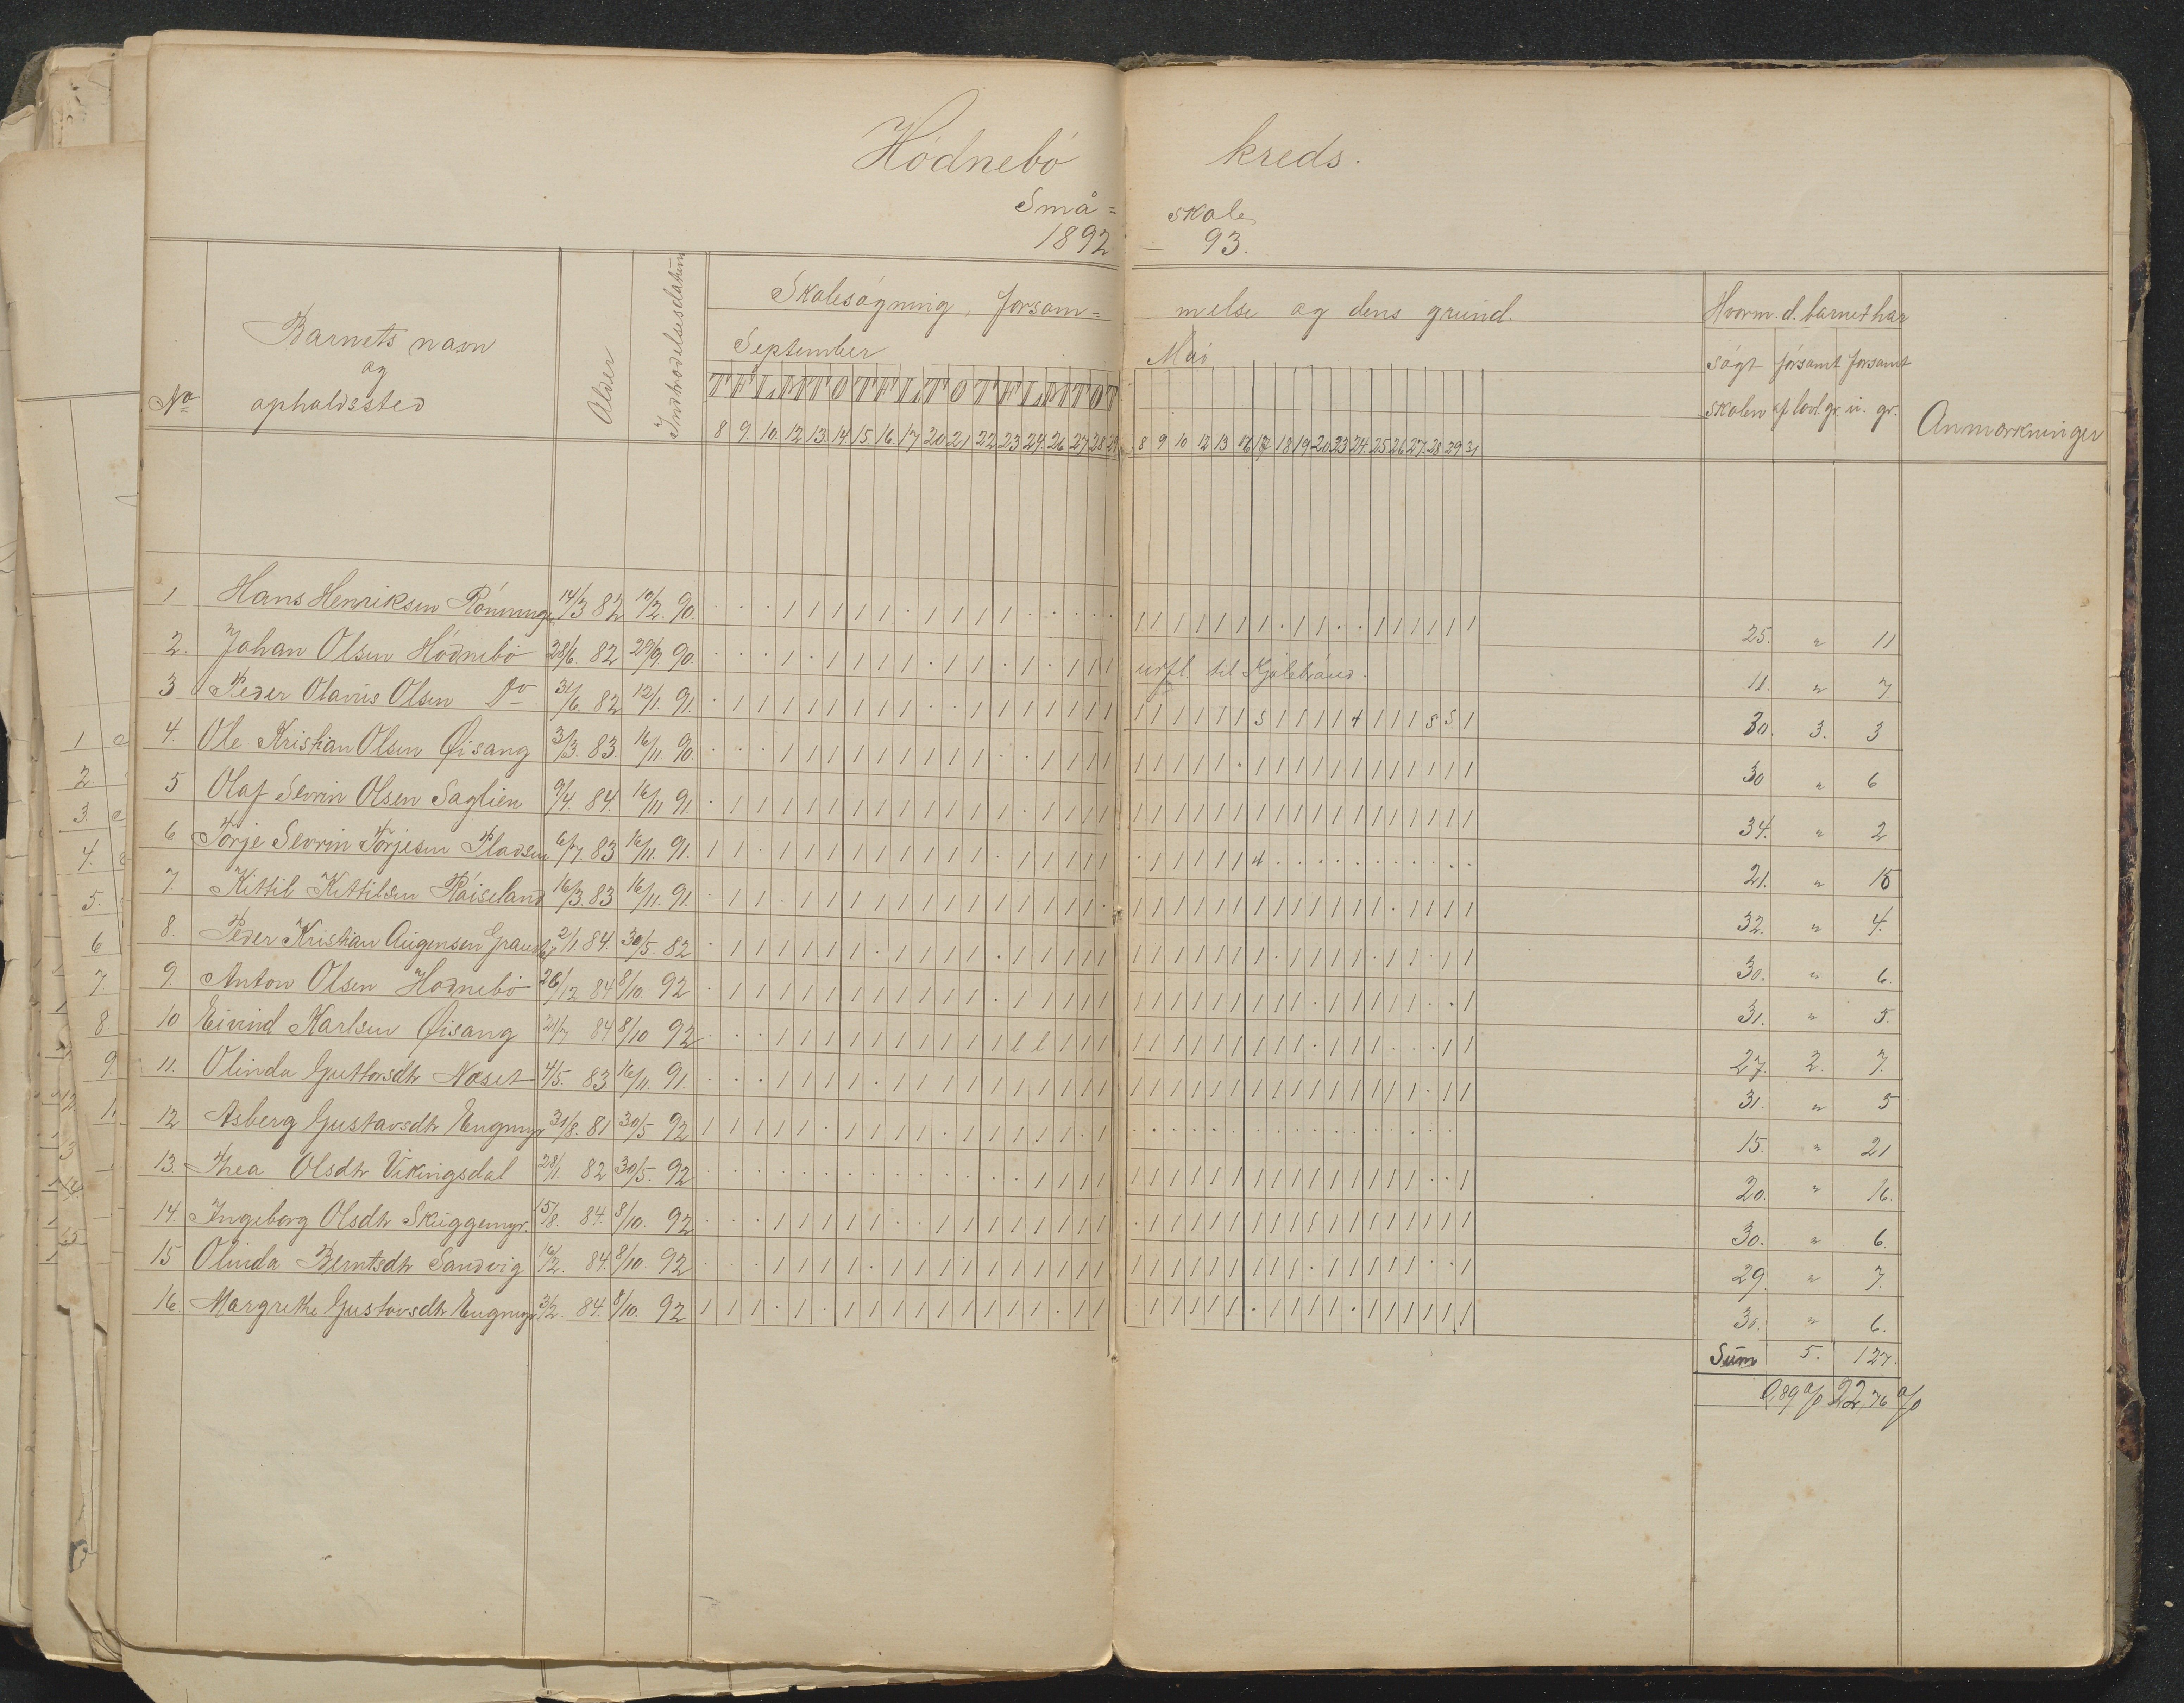 Hódnebó kreds.
Små= skole
1892 — 93.
No
Barnets navn
og
opholdssted
Alder
Indtrædelsesdatum
Skolesøgning, forsøm= melse og dens grund.
September Mai
8 9. 10. 12 13. 14 15 16. 17 20 21 22 23 24. 26 27 28 29 8 9 10 12 13 16 17 18 19 20 23 24. 25 26 27. 28 29 31
Hvorm. d. barnet har
søgt forsømt forsømt
skolen af lovl. gr. u. gr.
Anmærkninger
1 Hans Henriksen 14/3 82 90. 25. " 11
2. Johan Olsen Hódnebó 28/6. 82 90. udfl. til Kjølebrønd. 11. " 7
3 Peder Olavus Olsen Do 31/6. 82 12/1. 91. 30. 3. 3
4. Ole Kristian Olsen Øisang 3/3. 83 16/11. 90. 30 " 6
5 Olaf Sevrin Olsen Saglien 9/4. 84. 16/11 91. 34. " 2
6 Torje Sevrin Torjesen Pladsen 6/7. 83 16/11. 91. 21. " 15
7. Kittil Kittilsen Røiseland 16/3. 83 16/11. 91. 32. " 4.
8. Peder Kristian 2/1. 84. 30/5. 82 30. " 6.
9. Anton Olsen Hødnebø 26/12 84 8/10. 92 31. " 5.
10 Eivind Karlsen Øisang 21/7 84 8/10 92 27. 2. 7.
11. Olinda Guttorsdtr Næset 4/5. 83 16/11. 91. 31. " 5
12 Asberg Gustavsdtr Engmyr 31/8. 81 30/5 92 15. " 21
13. Thea Olsdtr Vikingsdal 28/1. 82 30/5. 92 20. " 16.
14. Ingeborg Olsdtr Skuggemyr. 15/8. 84. 8/10. 92 30. " 6.
15 Olinda Berntsdtr Sandvig 16/2. 84. 8/10. 92 29. " 7.
16. Margrethe Gustavsdtr Engmyr 3/2. 84. 8/10. 92 30. " 6.
Sum 5. 127.
0,89 % 22,76 %